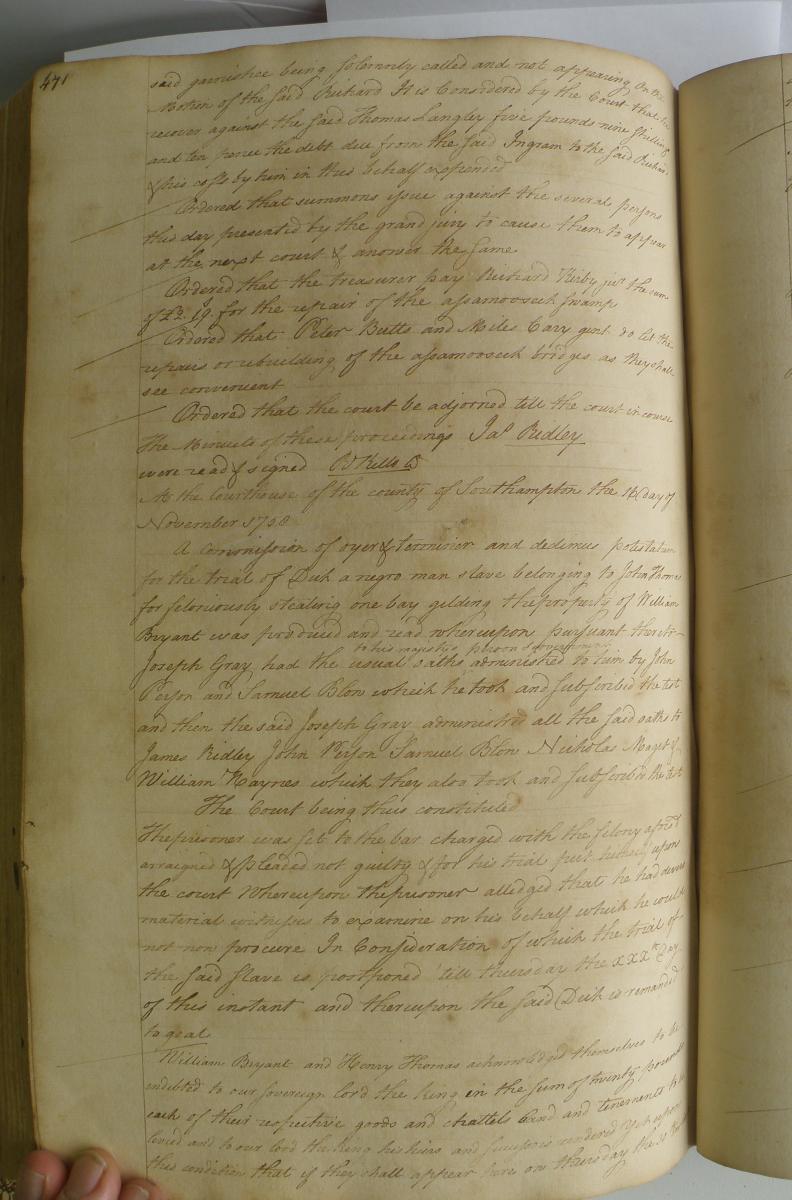 471
said garnishee being solemnly called and not appearing On the
Motion of the said Richard It is Considered by the Court that he
recover against the said Thomas Langley five pounds nine shillings
and ten pence the debt due from the said Ingram to the said Richard
& his costs by him in this behalf expended
Ordered that summons issue against the several persons
this day presented by the grand jury to cause them to appear
at the next court & answer the same
Ordered that the treasurer pay Richard Kirby junr the sum
of £3.19. for the repair of the assamoosech swamp
Ordered that Peter Butts and Miles Cary gent do let the
repairs or rebuilding of the assamoosech bridges as they shall
see convenient
Ordered that the court be adjorned till the court in course
The Minuets of these proceedings Jas Ridley
were read & signed
At the Courthouse of the county of Southampton the day of
November
A commission of oyer & terminer and dedimus potestatum
for the trial of Dick a negro man slave belonging to John Thomas
for feloniously stealing one bay gelding the property of William
Bryant was produced and read whereupon pursuant thereto
to his majestis person & government
Joseph Gray had the usual oaths administred to him by John
Person and Samuel Blow which he took and subscribed the test
and then the said Joseph Gray administred all the said oaths to
James Ridley John Person Samuel Blow Nicholas Maget &
William Haynes which they also took and subscribed the test
The Court being thus constituted
The prisoner was set to the bar charged with the felony aforsd
arraigned & pleaded not guilty & for his trial put himself upon
the court Whereupon the prisoner alledged that he had divers
material witnesses to examine on his behalf which he could
not now procure In Consideration of which the trial of
the said slave is postponed till thursday the xxxth Day
of this instant and thereupon the said Dick is remanded
to goal
William Bryant and Henry Thomas acknowledged themselves to be
indebted to our sovereign lord the king in the sum of twenty pounds
each of their respective goods and chattels land and tenements to be
levied and to our lord the king his heirs and successors rendered Yet upon
this condition that if they shall appear here on thursday the